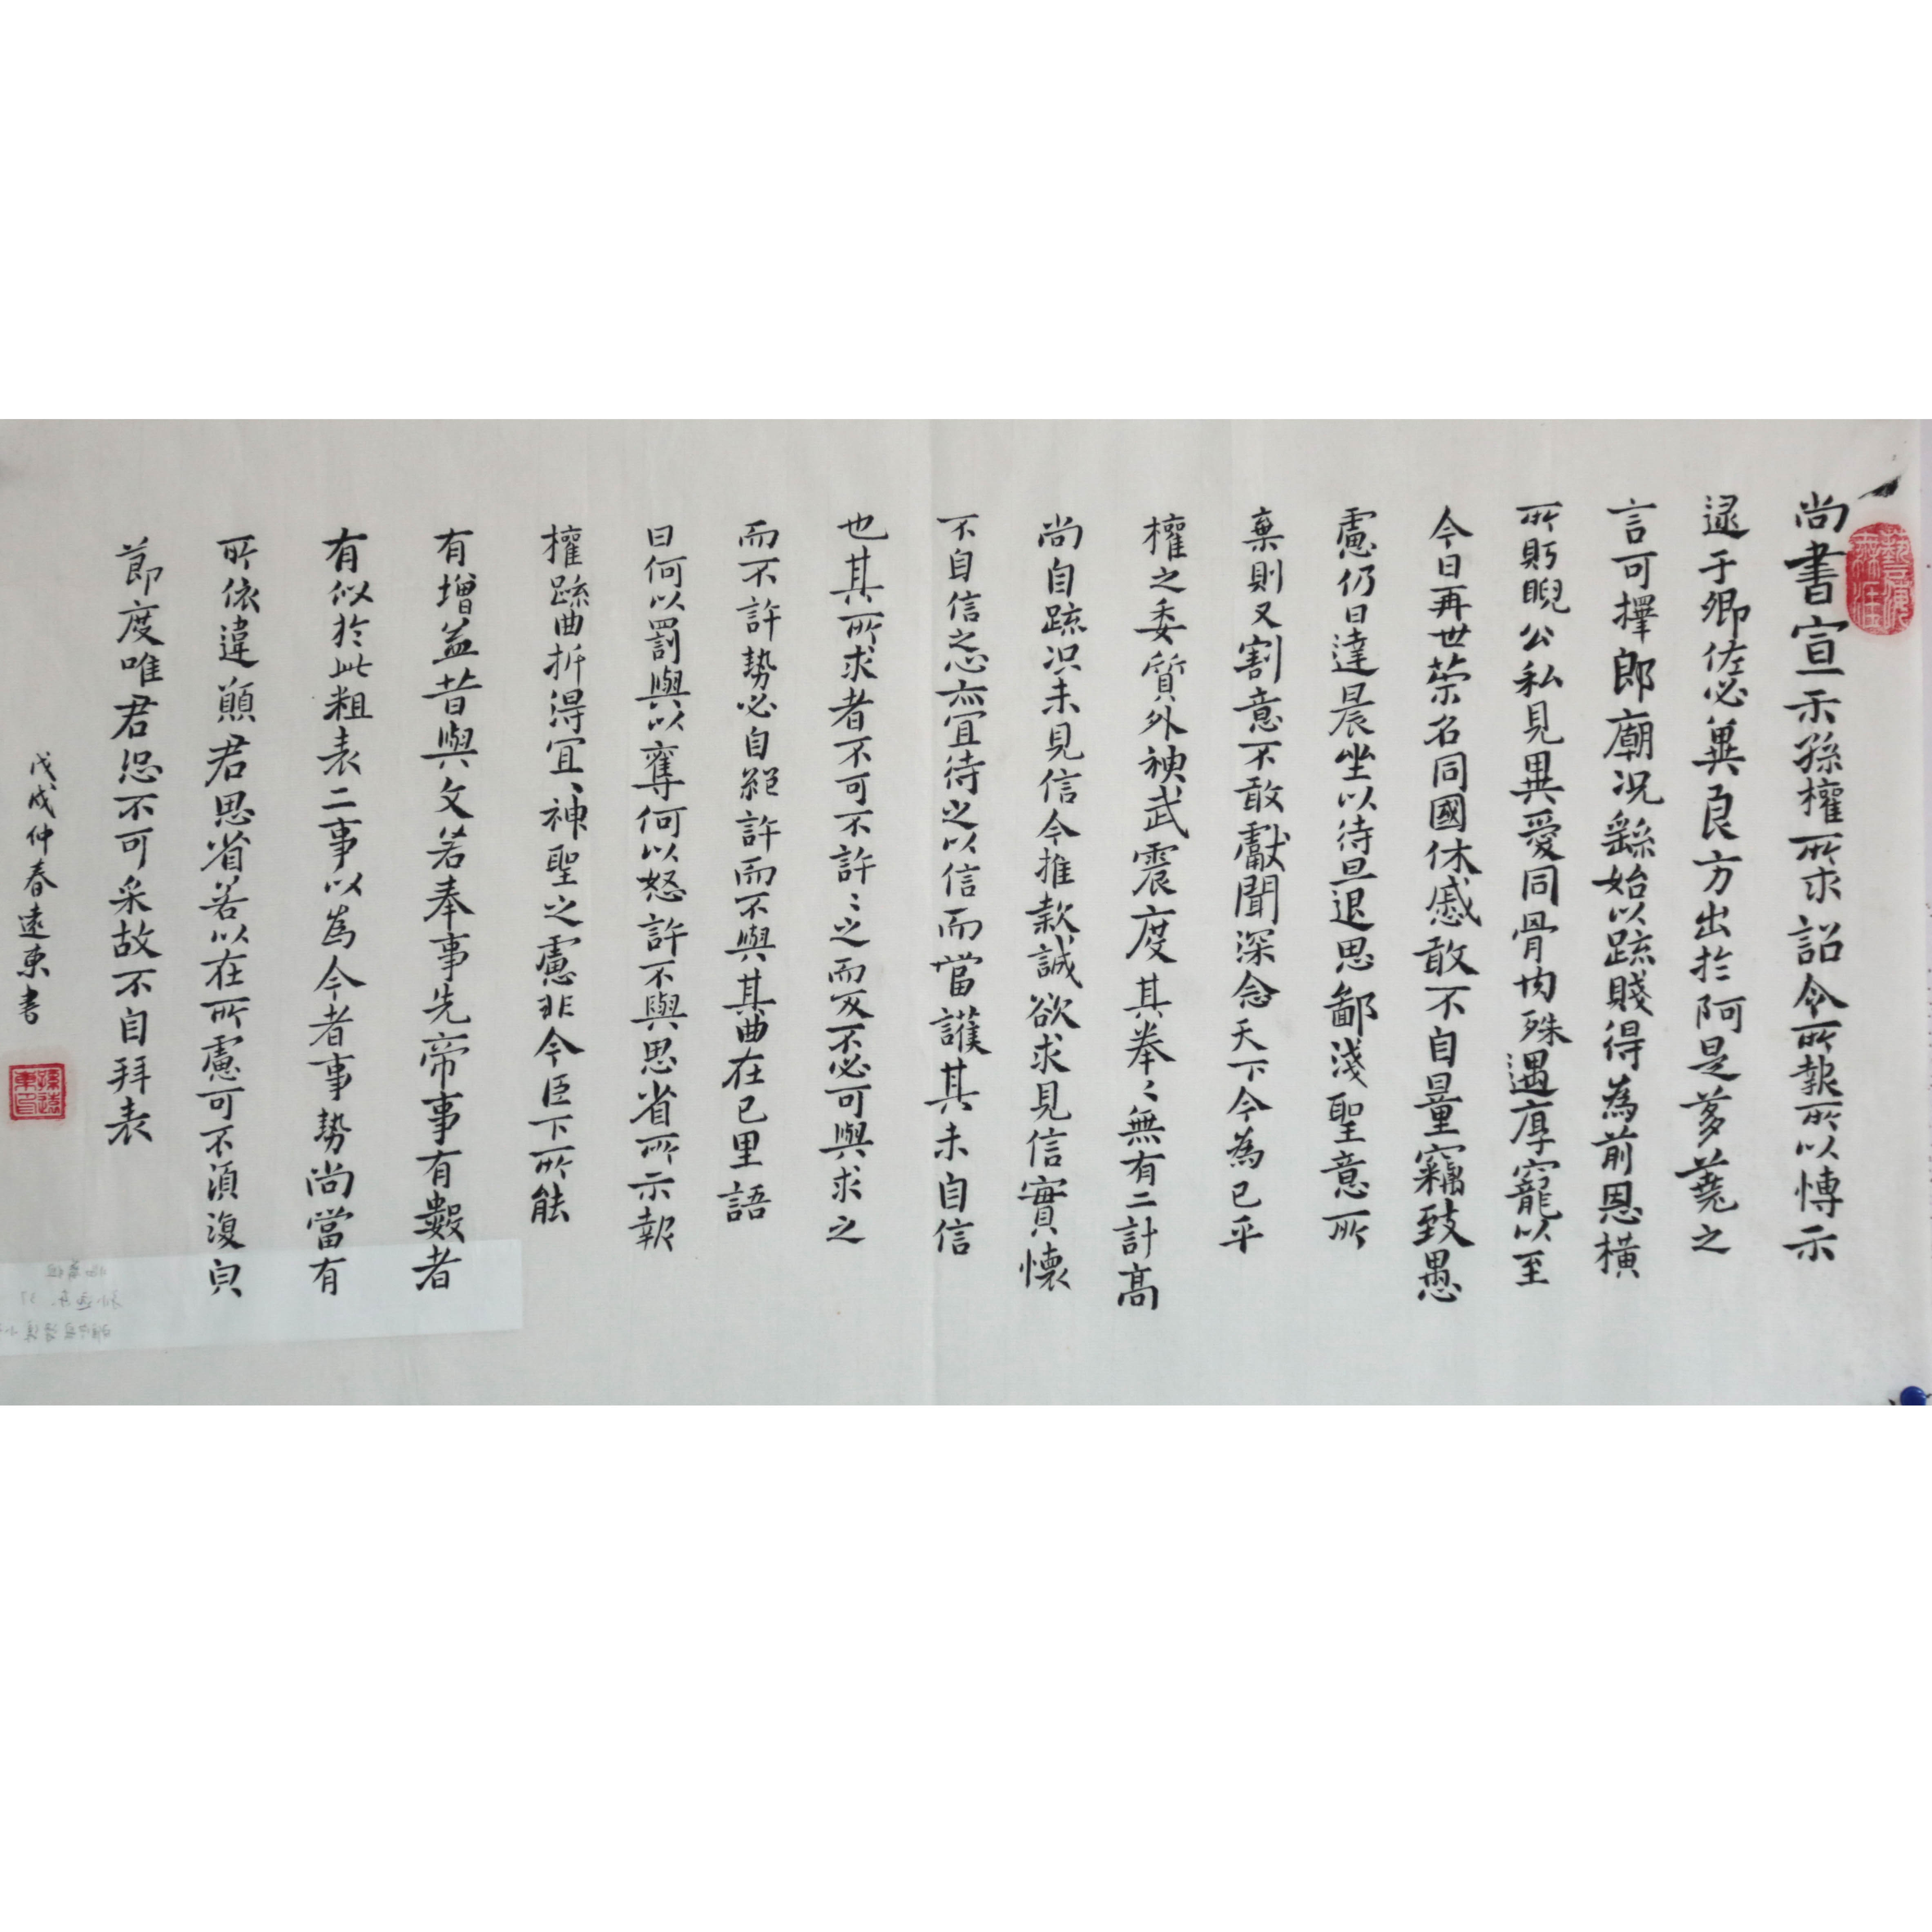 尚書宣示孫權所求詔令所報所以博示
逮于卿佐必冀良方出於阿是芻蕘之
言可擇郎廟況繇始以疏賤得為前恩橫
所眄睨公私見異愛同骨肉殊遇厚寵以至
今日再世榮名同國休慼敢不自量竊致愚
慮仍日達晨坐以待旦退思鄙淺聖意所
棄則又割意不敢獻聞深念天下今為已平
權之委質外神武震度其拳〻無有二計高
尚自疏況未見信今推款誠欲求見信實懷
不自信之心亦宜待之以信而當護其未自信
也其所求者不可不許〻之而反不必可與求之
而不許勢必自絕許而不與其曲在己里語
曰何以罰與以奪何以怒許不與思省所示報
權疏曲折得宜〻神聖之慮非今臣下所能
有增益昔與文若奉事先帝事有數者
有似於此粗表二事以為今者事勢尚當有
所依違願君思省若以在所慮可不須復皃
節度唯君恐不可采故不自拜表
戊戌仲春遠東書
孫遠東印